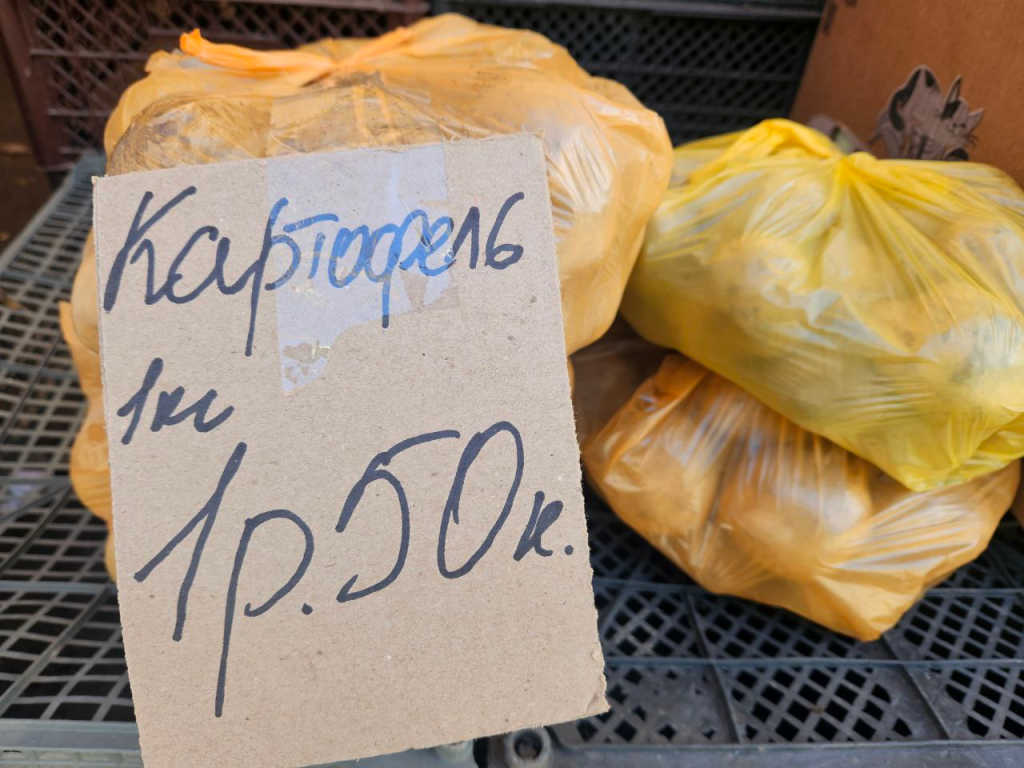 Картофель
1кг
1р.50к.